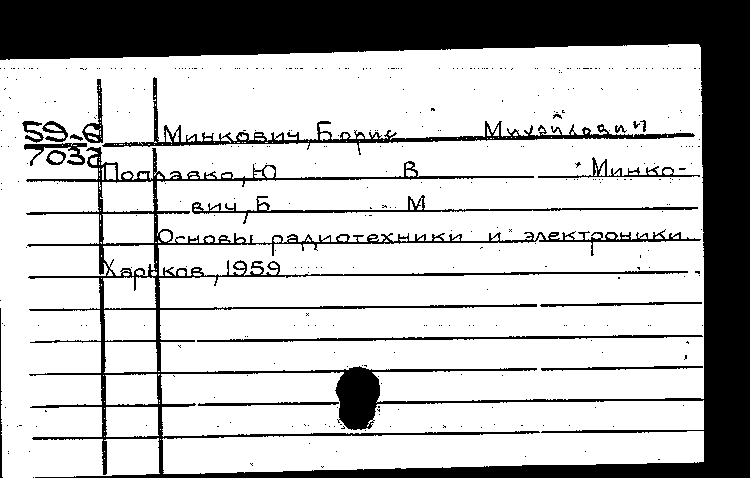 59-8 Минкович, Борис Михайлович
7032 Поплавко, Ю В Минко-
вич, Б М
Основы радиотехники и электроники.
Харьков, 1959